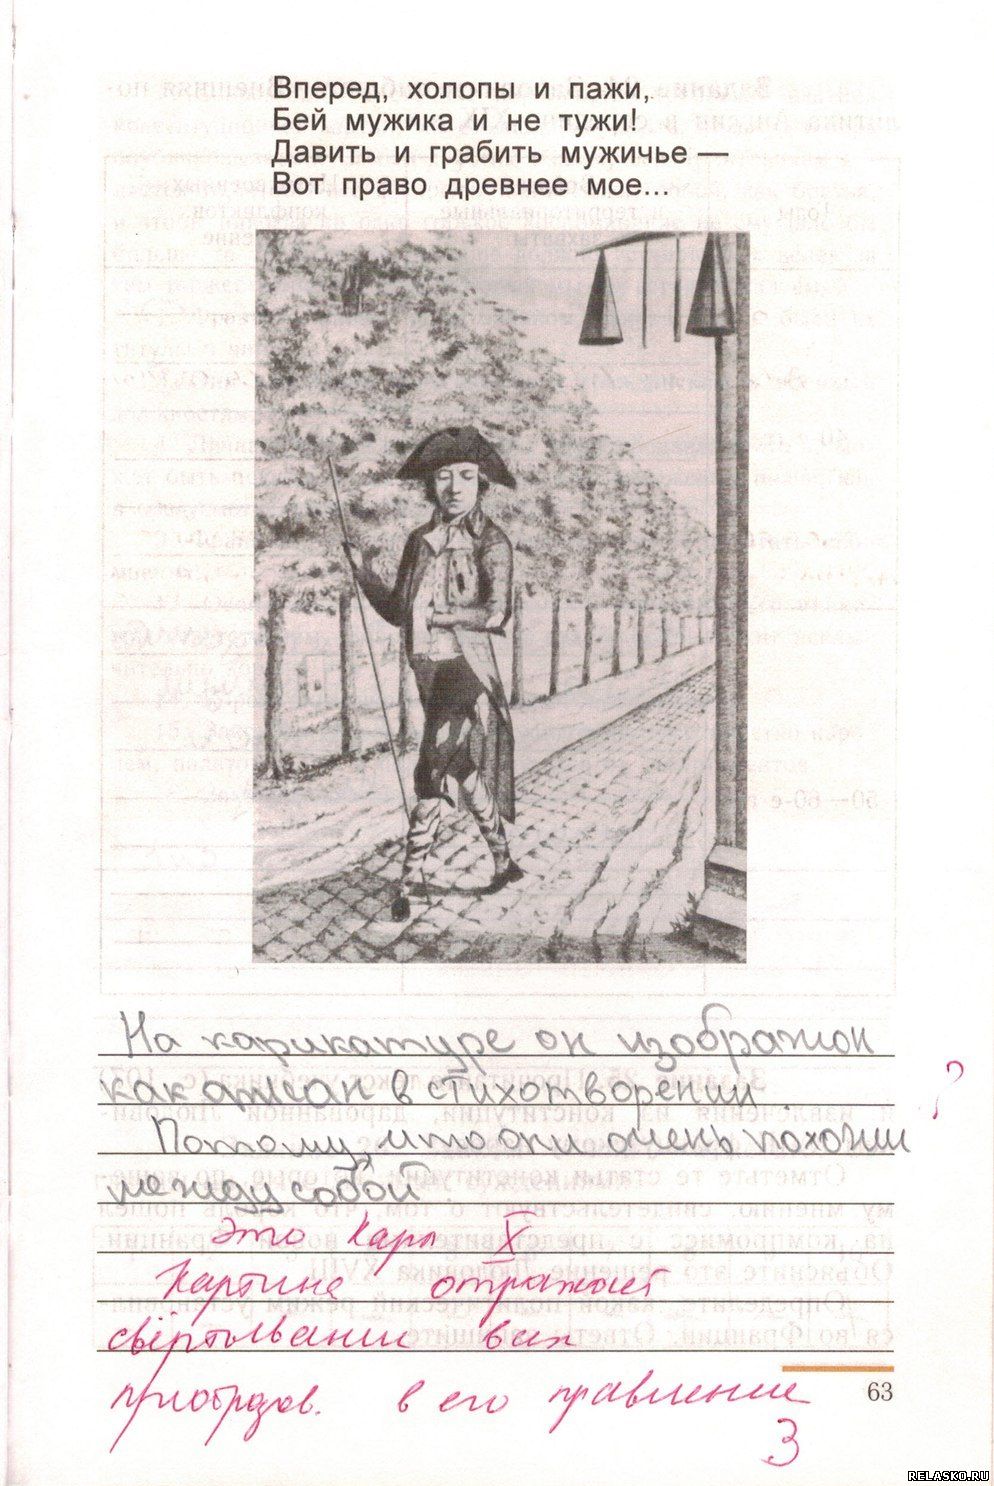 Вперед, холопы и пажи,
Бей мужика и не тужи!
Давить и грабить мужичье —
Вот право древнее мое...
На карикатуре он изображон
как описан в стихотворении.
Потому, что они очень похожи
между собой.
?
Это Карл X
Картина отражает
свёртывании всех
преобразов. в его правление
3
63
RELASKO.RU